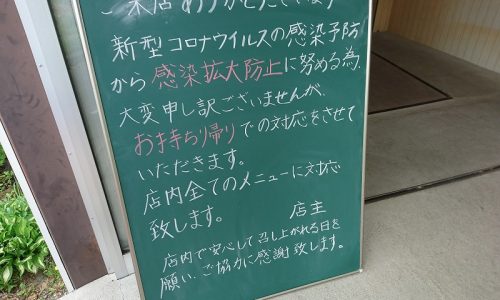 ご来店ありがとうございます
新型コロナウイルスの感染予防
から感染拡大防止に努める為、
大変申し訳ございませんが、
お持ち帰りでの対応をさせて
いただきます。
店内全てのメニューに対応
致します。
店主
店内で安心して召し上がれる日を
願い、ご協力に感謝致します。